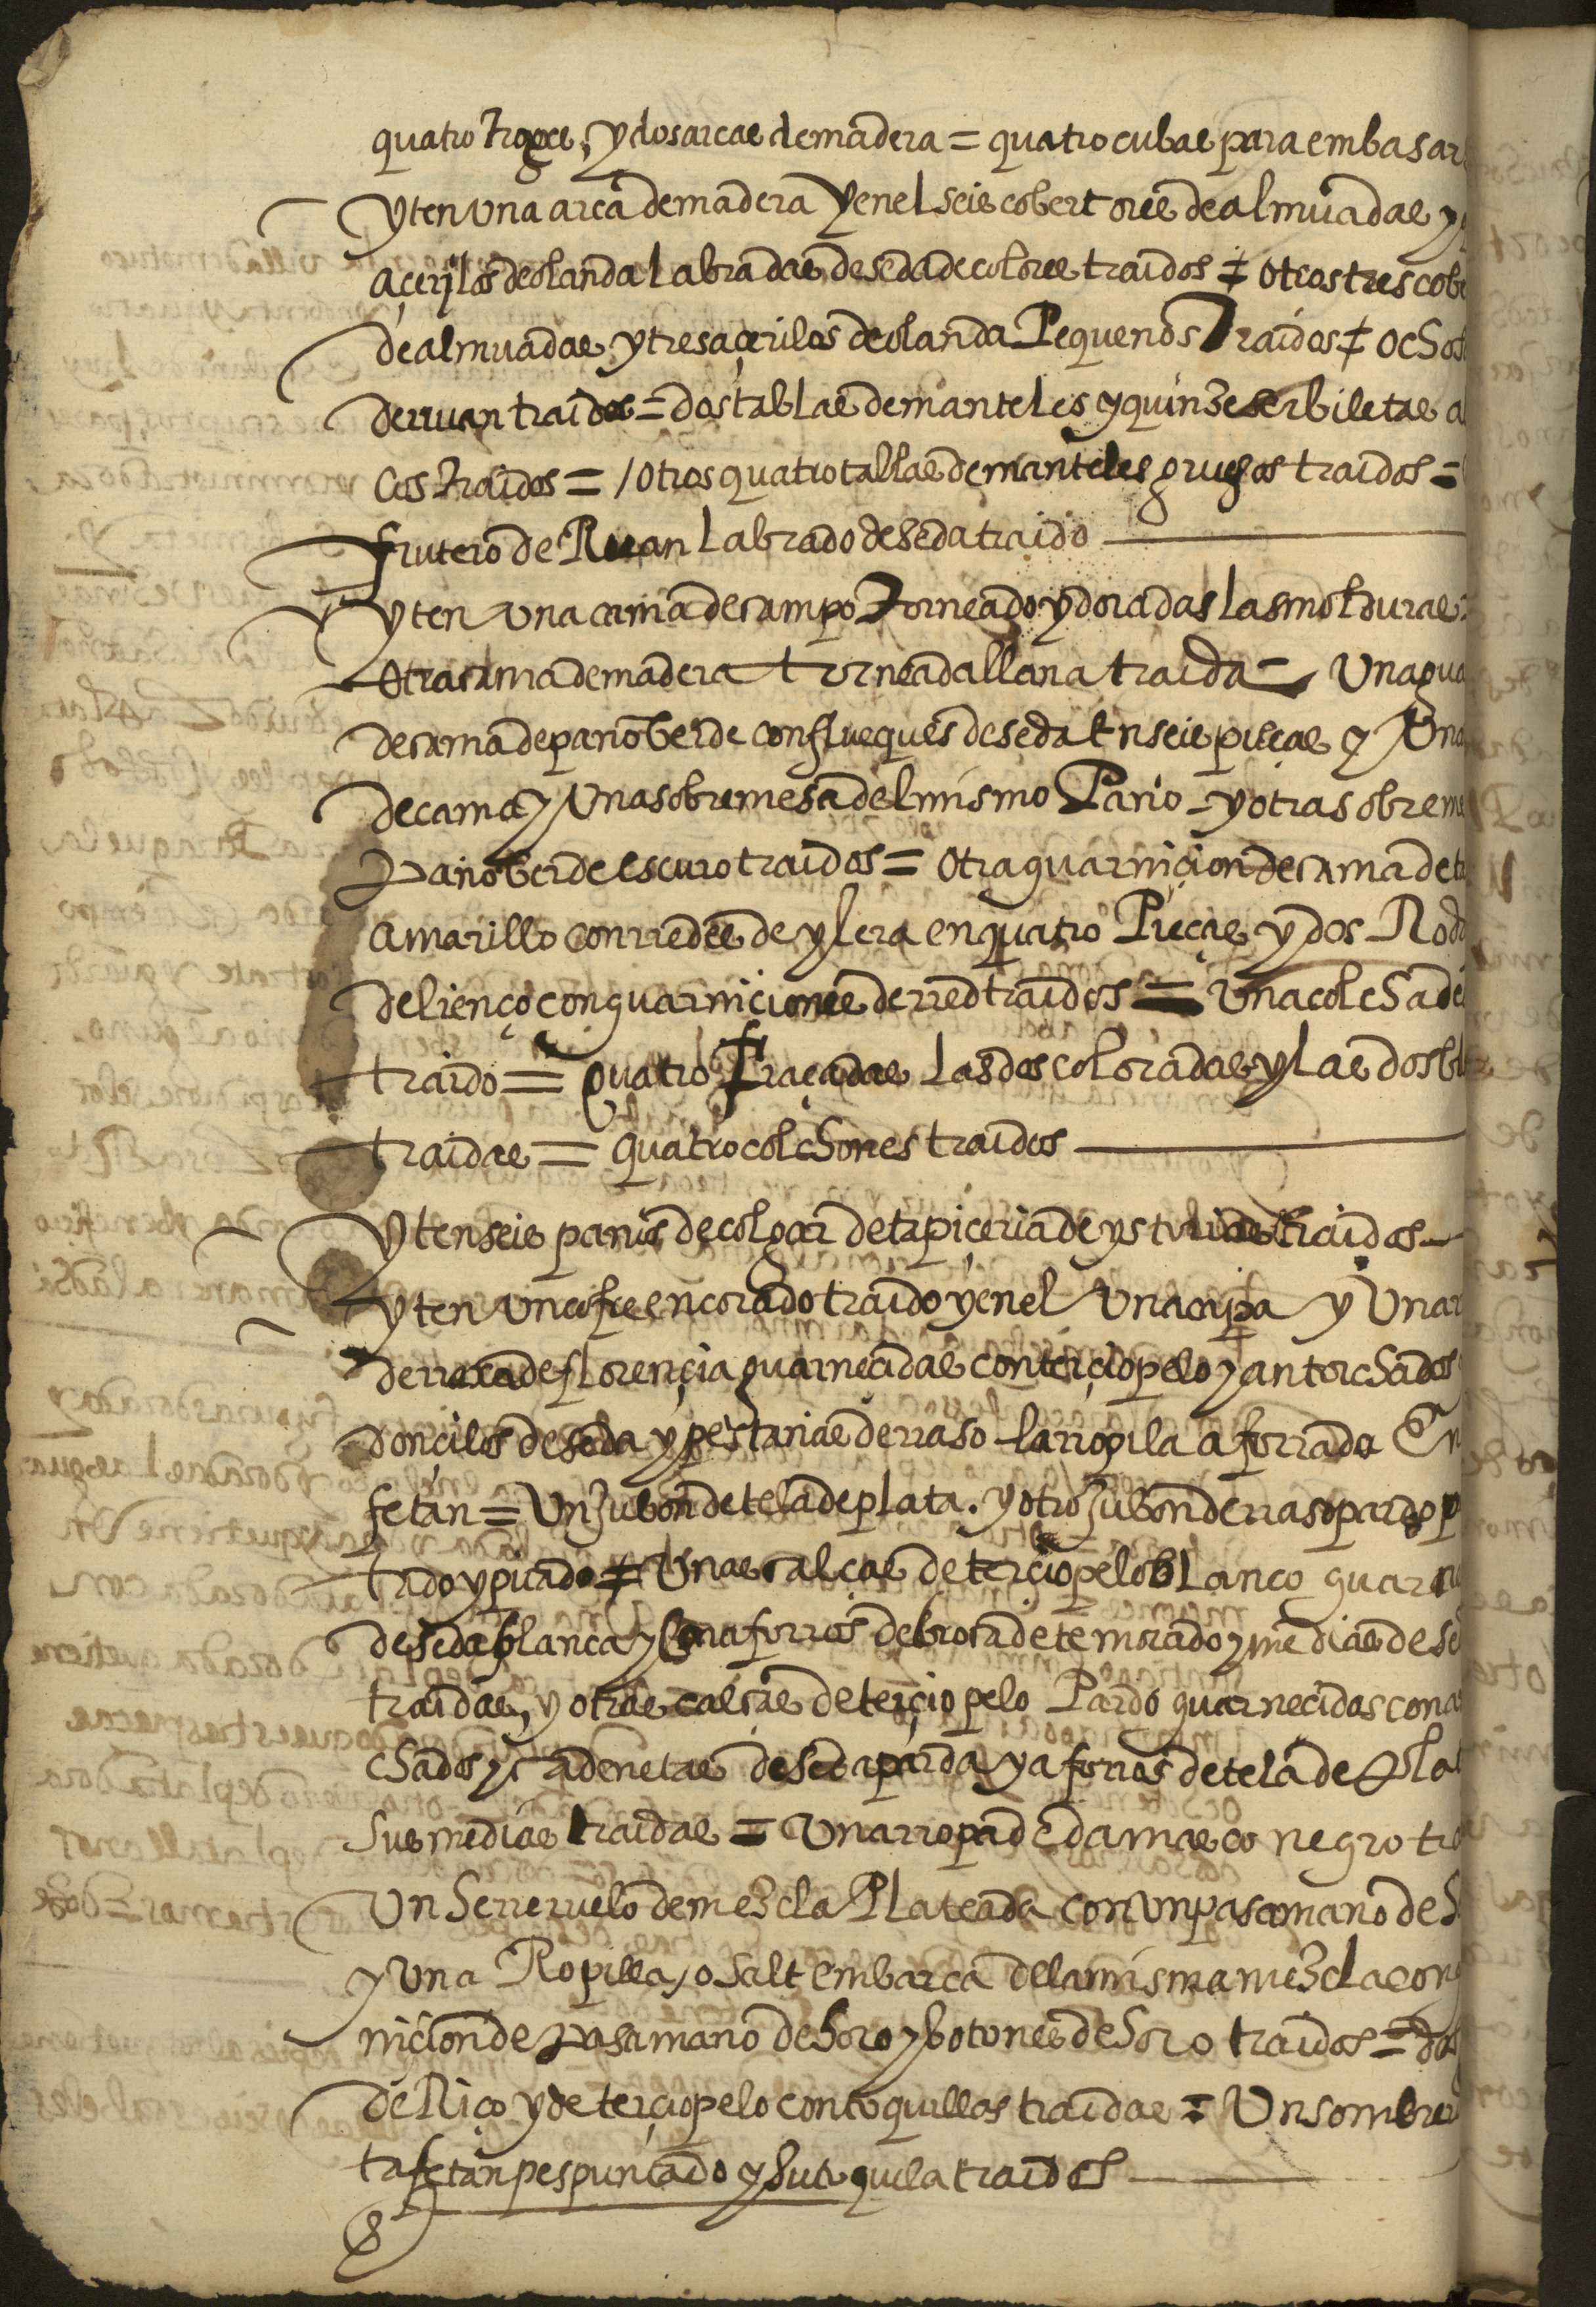 quatro y dos arcas de madera = quatro cubas para embasar
yten Una arca de madera y en el seis cobertores de almuadas y
açerilos de olanda labradas de seda de colores traidos = otros tres cob
de almuadas y tres açerilos de olanda Pequenos Traidos = ocho
de rruan traidos = dos tablas de manteles y quinze serbiletas a
cos traidos = / otros quatro tablas de manteles gruesos traidos =
frutero de Ruan labrado de seda traido
yten una cama de campo Torneado y doradas las molduras =
otra cama de madera torneada llana traida = Una gua
de cama de pano berde con flueques de seda En seis pieças y Una
de cama y Una sobremesa del mismo Pano - y otra sobreme
Pano berde escuro traidos = otra guarniçion de cama de t
amarillo con rredes de ylera en quatro Pieças y dos Rod
de lienço con guarniciones de rred traidos = Una colcha de
traido = quatro fraçadas las dos coloradas y las dos bl
traidas = quatro colchones traidos
yten seis panos de colgar de tapiçeria de ystorias traidos
yten un cofre encorado traido y en el Una capa y Una r
de rraxa de florençia guarnecidas con terçiopelo y antorchados
donçilos de seda y pestanas de rraso la rropila aforrada En
fetan = Un Jubon de tela de plata. y otro Jubon de rraso pardo p
tado y picado = Unas calças de terçiopelo blanco guarn
de seda blanca y con aforros de brocadete morado y medias de se
traidas, y otras calças de terçiopelo Pardo guarnecidas con a
chados y cadenetas de seda parda y aforros de tela de Plat
sus medias traidas = Una rropa de damasco negro tr
Un herreruelo de mezcla Plateada con Un pasamano de h
y Una Ropilla / o saltembarca de la misma mezcla con g
nicion de Pasamano de horo y botones de horo traidos = dos
de Riço y de terçiopelo con toquillas traidas = Un sombrer
tafetan pespuntado y su toquila traidos